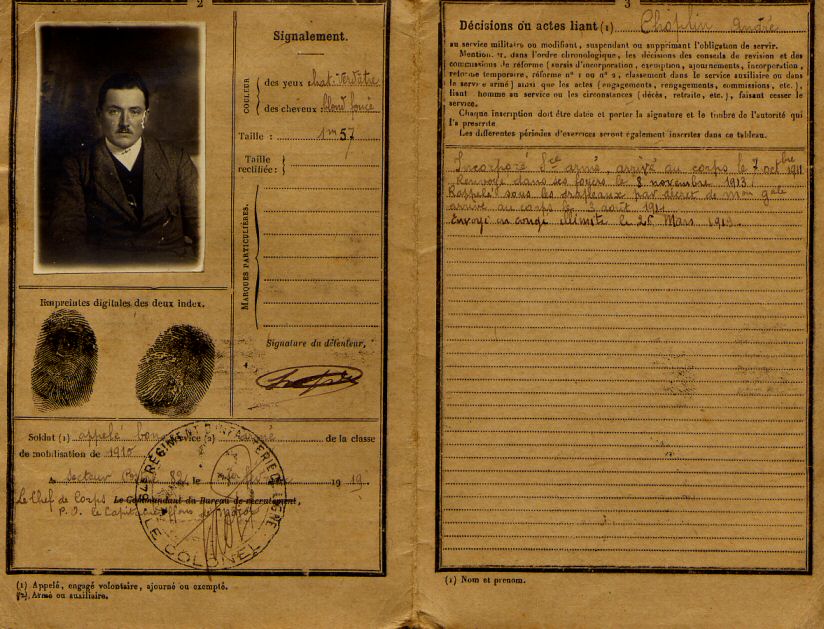 2
Signalement.
COULEUR
des yeux : chat. verdâtre
des cheveux : blond foncé
Taille : 1m 57
Taille
rectifiée :
MARQUES PARTICULIÈRES.
Empreintes digitales des deux index.
Signature du détenteur,
Soldat (1) appelé bon service (2) armé de la classe
de mobilisation de 1910
A secteur 82, le 1919
Le Chef de Corps Le Commandant du Bureau de recrutement,
P. O. le Capitaine
RÉGIMENT D'INFANTERIE DE LIGNE
LE COLONEL
(1) Appelé, engagé volontaire, ajourné ou exempté.
(2) Armé ou auxiliaire.
3
Décisions ou actes liant (1) Choplin André
au service militaire ou modifiant, suspendant ou supprimant l'obligation de servir.
Mentionner, dans l'ordre chronologique, les décisions des conseils de revision et des
commissions de réforme (sursis d'incorporation, exemption, ajournements, incorporation,
réforme temporaire, réforme n° 1 ou n° 2, classement dans le service auxiliaire ou dans
le service armé) ainsi que les actes (engagements, rengagements, commissions, etc.),
liant l'homme au service ou les circonstances (décès, retraite, etc.), faisant cesser le
service.
Chaque inscription doit être datée et porter la signature et le timbre de l'autorité qui
l'a prescrite.
Les différentes périodes d'exercices seront également inscrites dans ce tableau.
Incorporé Sce armé, arrivé au corps le 7 octbre 1911
Renvoyé dans ses foyers le 8 novembre 1913
Rappelé sous les drapeaux par décret de mon gale
arrivé au corps le 3 août 1914
Envoyé en congé illimité le 26 Mars 1919.
(1) Nom et prénom.